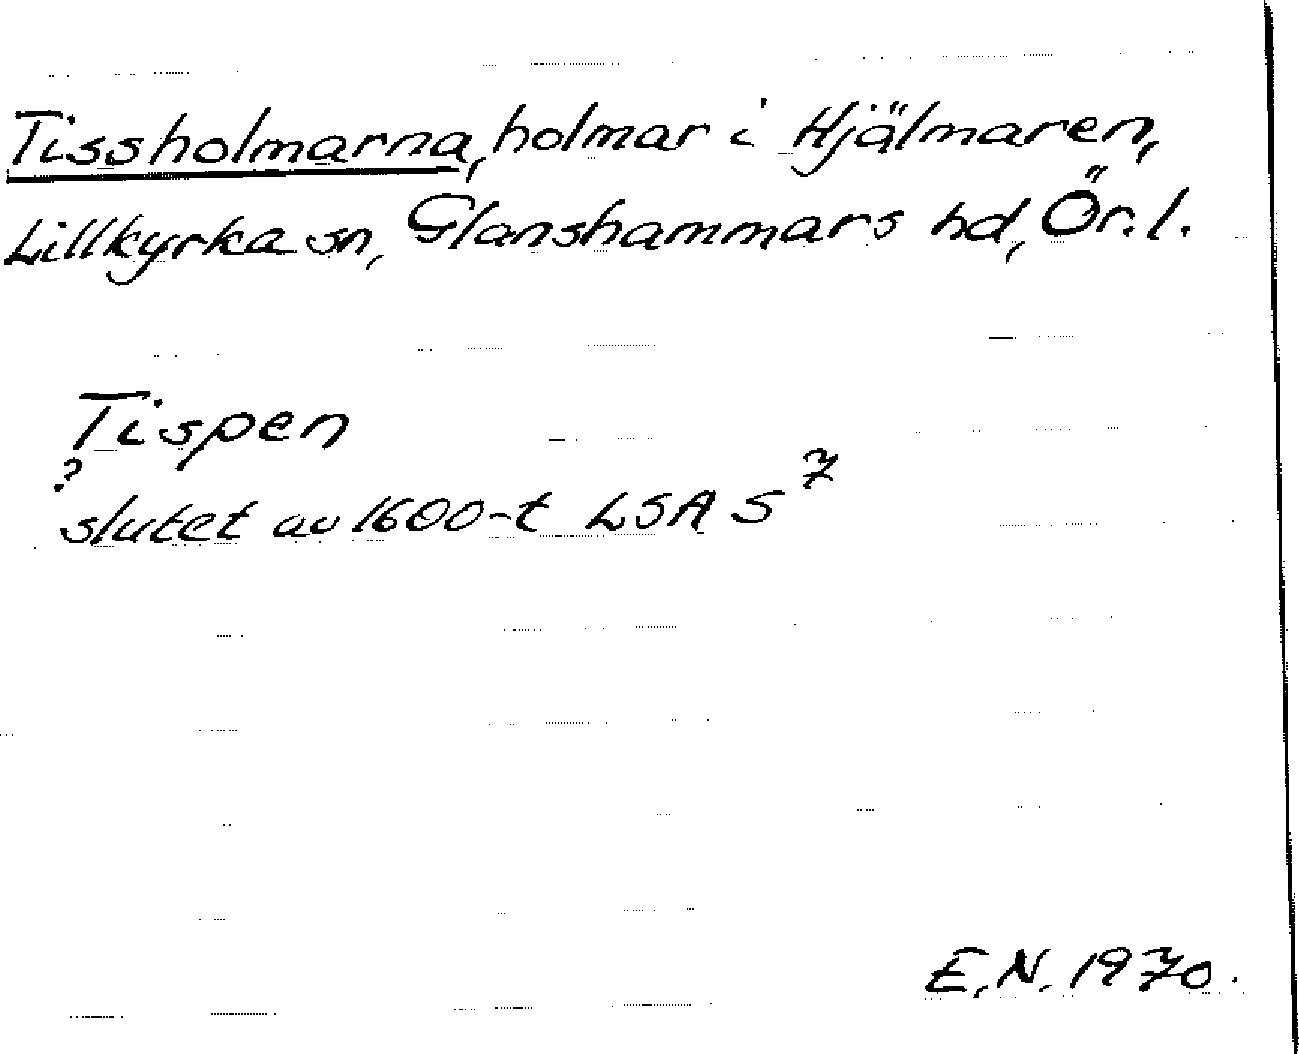 Tissholmarna, holmar i Hjälmaren,
Lillkyrka sn, Glanshammars hd, Ör. l.
Tispen
? slutet av 1600-t LSA S 7
E. N. 1970.